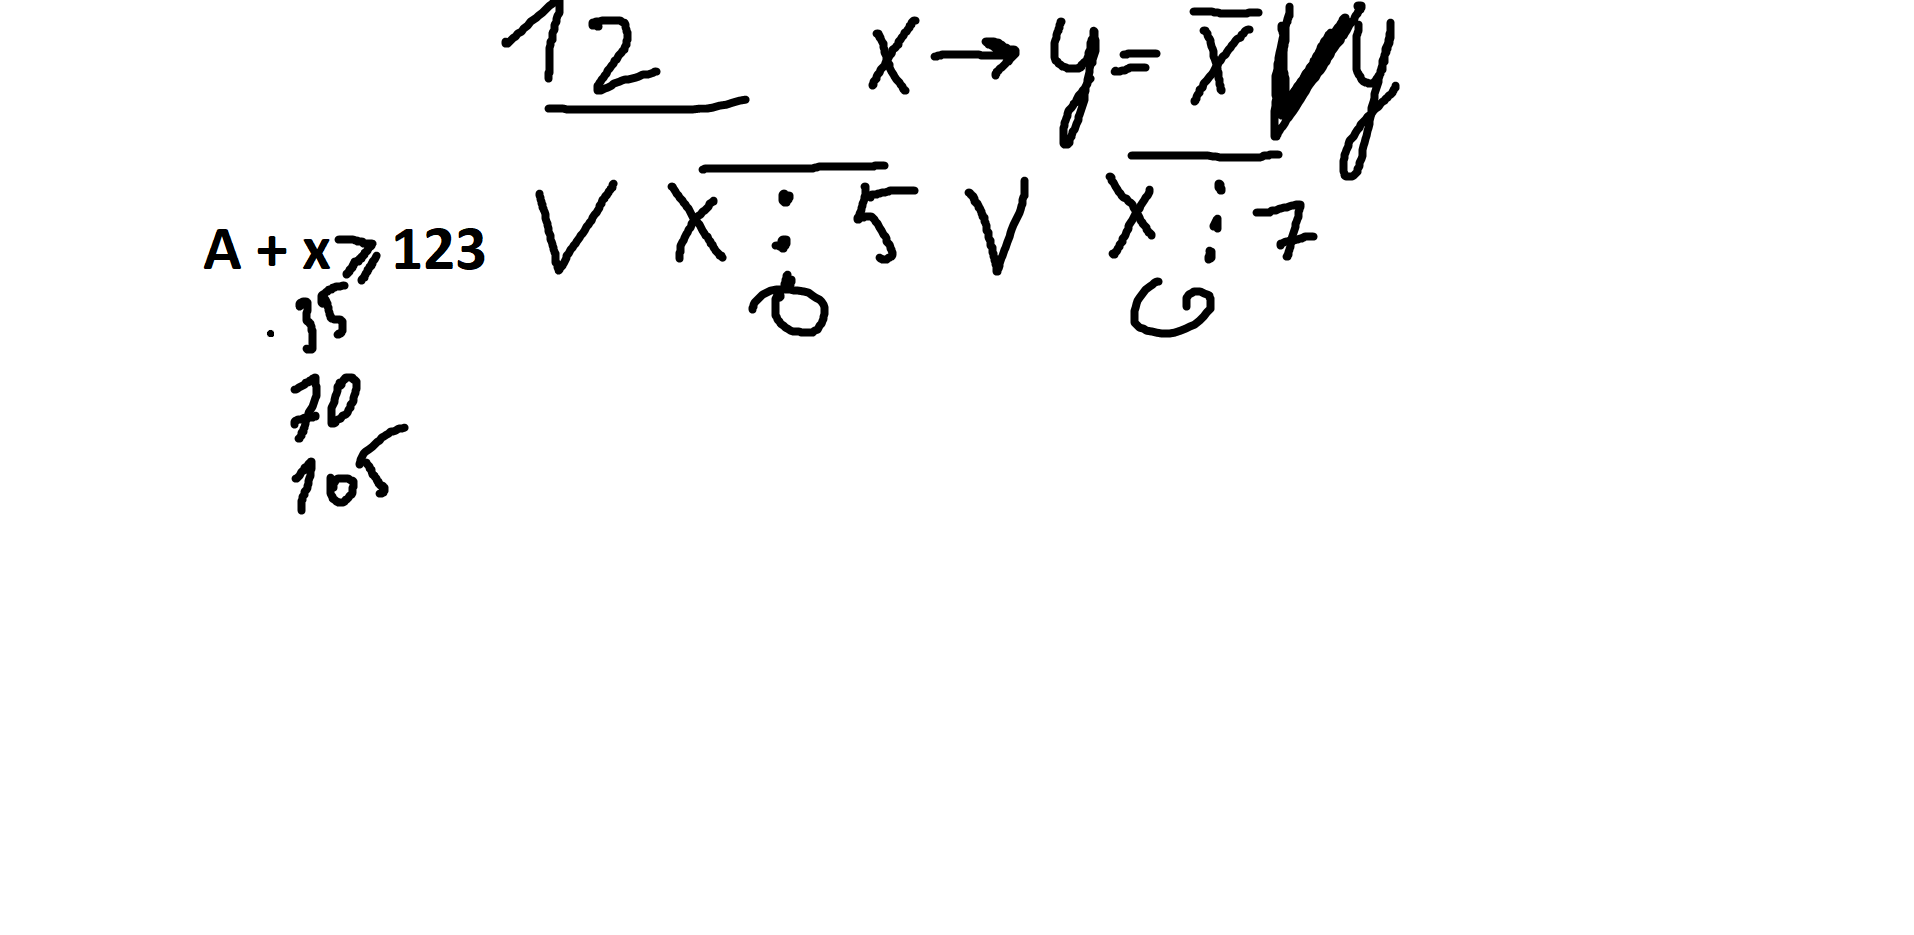 12 x → y = x̅ V y
A + x ⩾ 123 V x ⋮ 5 V x ⋮ 7
0 0
. 35
70
105